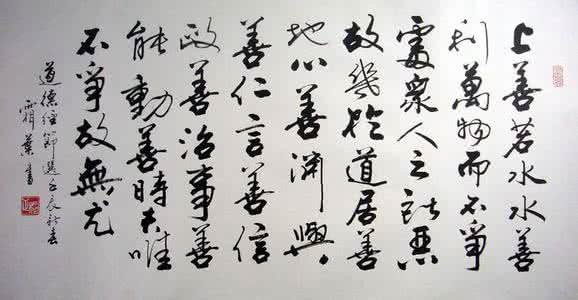 上善若水水善
利萬物而不爭
處衆人之所惡
故幾於道居善
地心善渊與
善仁言善信
政善治事善
能動善時夫唯
不爭故無尤
道德经節選辰春
葉書